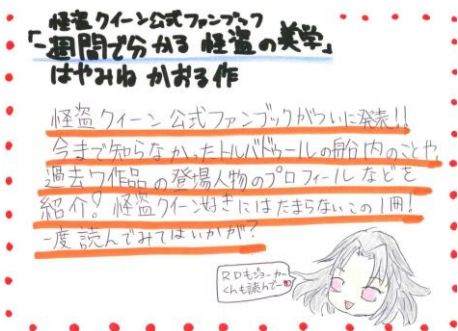 怪盗クイーン公式ファンブック
「一週間で分かる怪盗の美学」
はやみね かおる作
怪盗クイーン公式ファンブックがついに発売!!
今まで知らなかったトルバドゥールの船内のことや、
過去7作品の登場人物のプロフィールなどを
紹介!怪盗クイーン好きにはたまらないこの1冊!
一度読んでみてはいかが?
RDもジョーカー
くんも読んでー